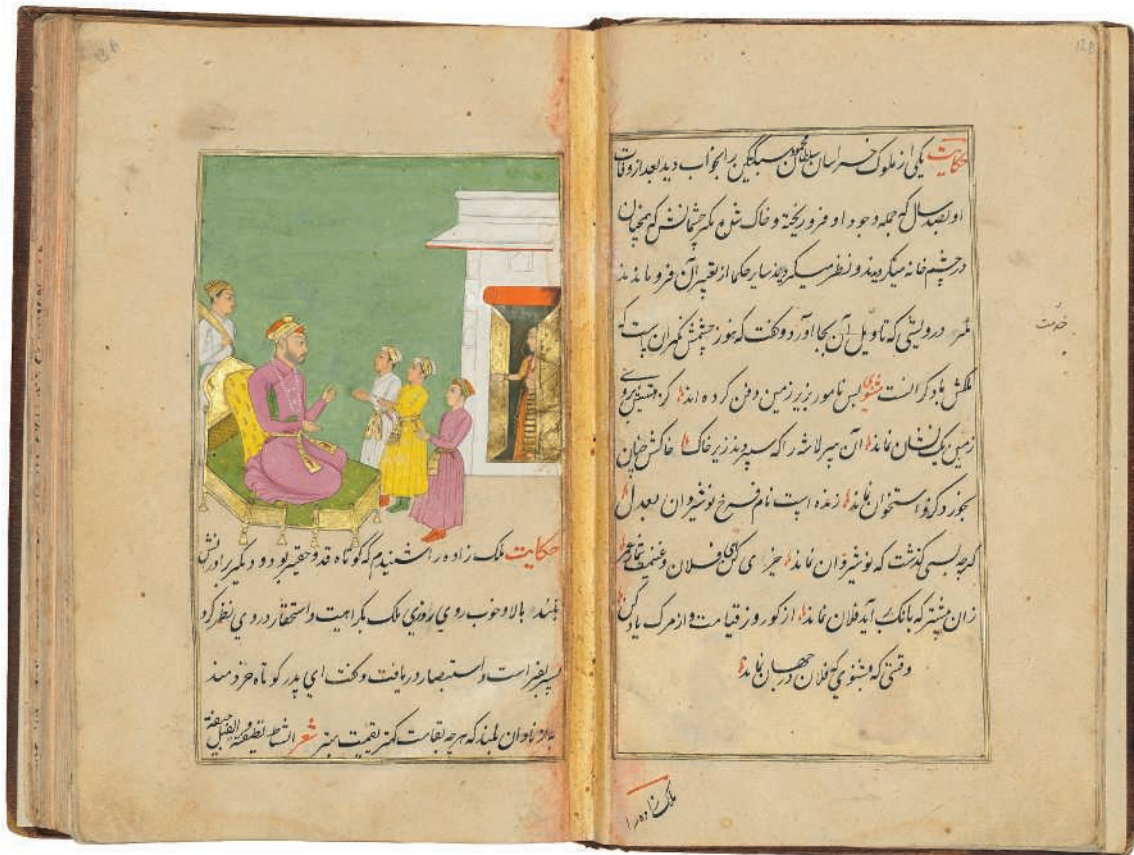 حکایت یکی از ملوک خراسان سلطان محمود سبکتگین را بخواب دید بعد از وفات
او بصد سال که جمله وجود او فرو ریخته و خاک شده مکر چشمانش که همچنان
در چشم خانه میکردیدند و نظر میکردند سایر حکما از تعبیر آن فرو ماندند
مکر درویشی که تاویل آن بجا آورد و کفت که هنوز چشمش نکران است که
ملکش با دکرانست مثنوی بس نامور بزیر زمین دفن کرده اند کز هستیش بروی
زمین یک نشان نماند آن پیر لاشه را که سپردند زیر خاک خاکش چنان
بخورد کزو استخوان نماند زنده است نام فرخ نوشیروان بعدل
کرچه بسی کذشت که نوشیروان نماند خیری کن ای فلان و غنیمت شمار عمر
زان پیشتر که بانک آید فلان نماند از کور و روز قیامت و از مرک یاد کن
وقتی که بشنوی که فلان در جهان نماند
خدمت
ملک زاده را
حکایت ملک زاده را شنیدم که کوتاه قد و حقیر بود و دیکر برادرانش
بلند بالا و خوب روی روزی ملک بکراهیت و استحقار در وی نظر کرد
پسر بفراست و استبصار دریافت و کفت ای پدر کوتاه خردمند
به از نادان بلند که هرچه بقامت کمتر بقیمت بهتر شعر الشاة نظیفة والفیل جیفة